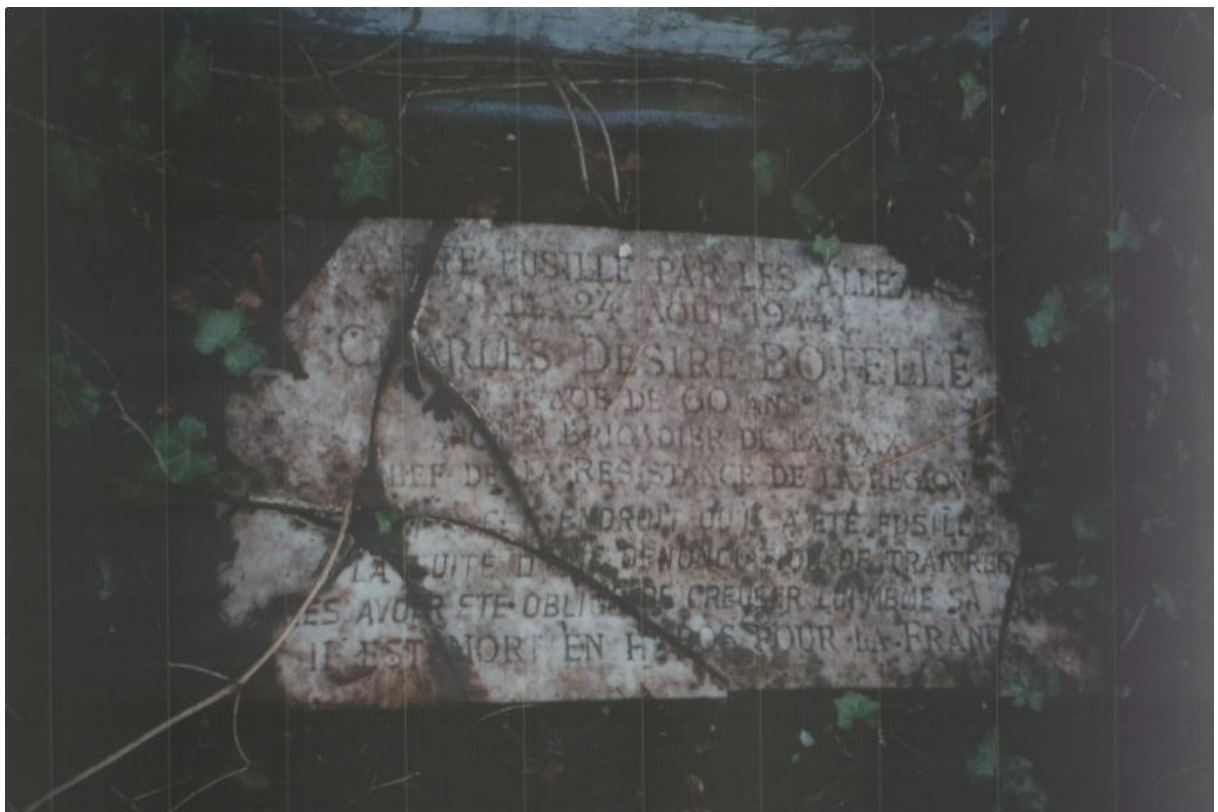 A ETE FUSILLE PAR LES ALLE
LE 24 AOUT 1944
CHARLES DESIRE BOTELLE
AGE DE 60 ANS
ANCIEN BRIGADIER DE LA PAIX
HEF DE LA RESISTANCE DE LA REGION
ENDROIT OU IL A ETE FUSILLE
LA SUITE D'UNE DENONCIATION DE TRAITRES
ES AVOIR ETE OBLIGE DE CREUSER LUI MEME SA
IL EST MORT EN HEROS POUR LA FRANC